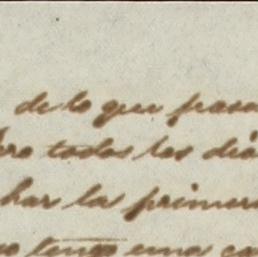 de lo que pasa
ro todos los día
har la primer
tengo una ca